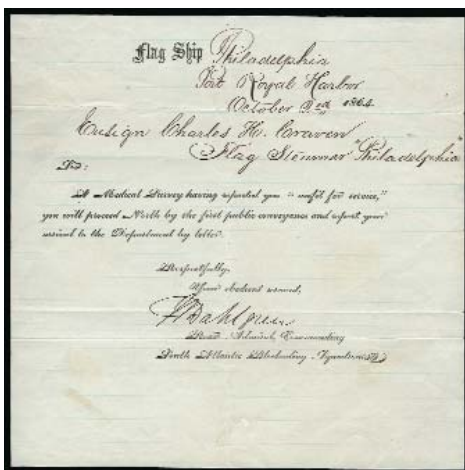 Flag Ship Philadelphia
Port Royal Harbor
October 1864
Ensign Charles H. Craven
Flag Steamer "Philadelphia"
Sir:
A Medical Survey having reported you "unfit for service,"
you will proceed North by the first public conveyance and report your
arrival to the Department by letter.
Respectfully,
Your obedient servant,
Dahlgren
Rear Admiral, Commanding
South Atlantic Blockading Squadron